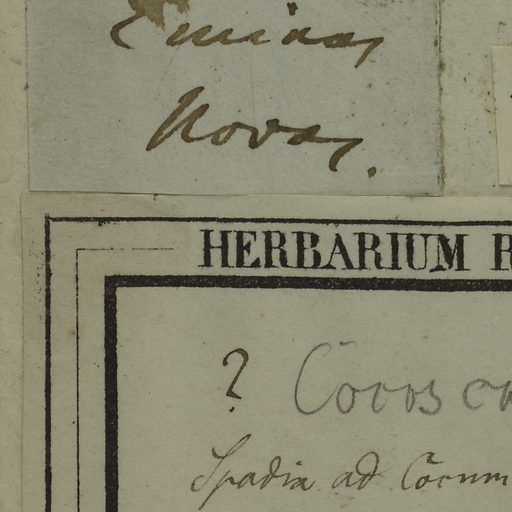 Minas
Novas.
HERBARIUM R
? Cocos co
Spadix ad Cocum